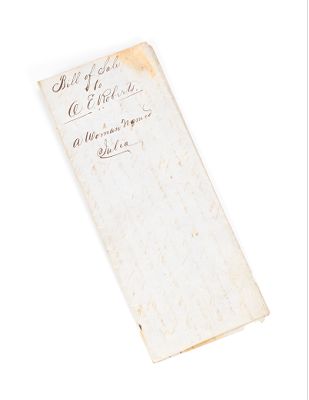 Bill of Sale
to
O. E. Roberts.
a Woman Named
Julia